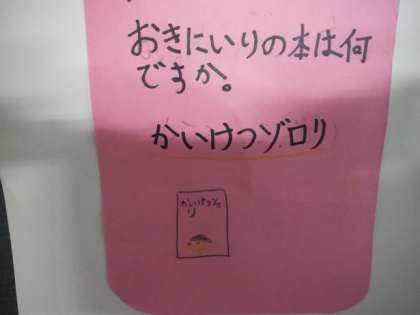 おきにいりの本は何
ですか。
かいけつゾロリ
かいけつゾロ
リ